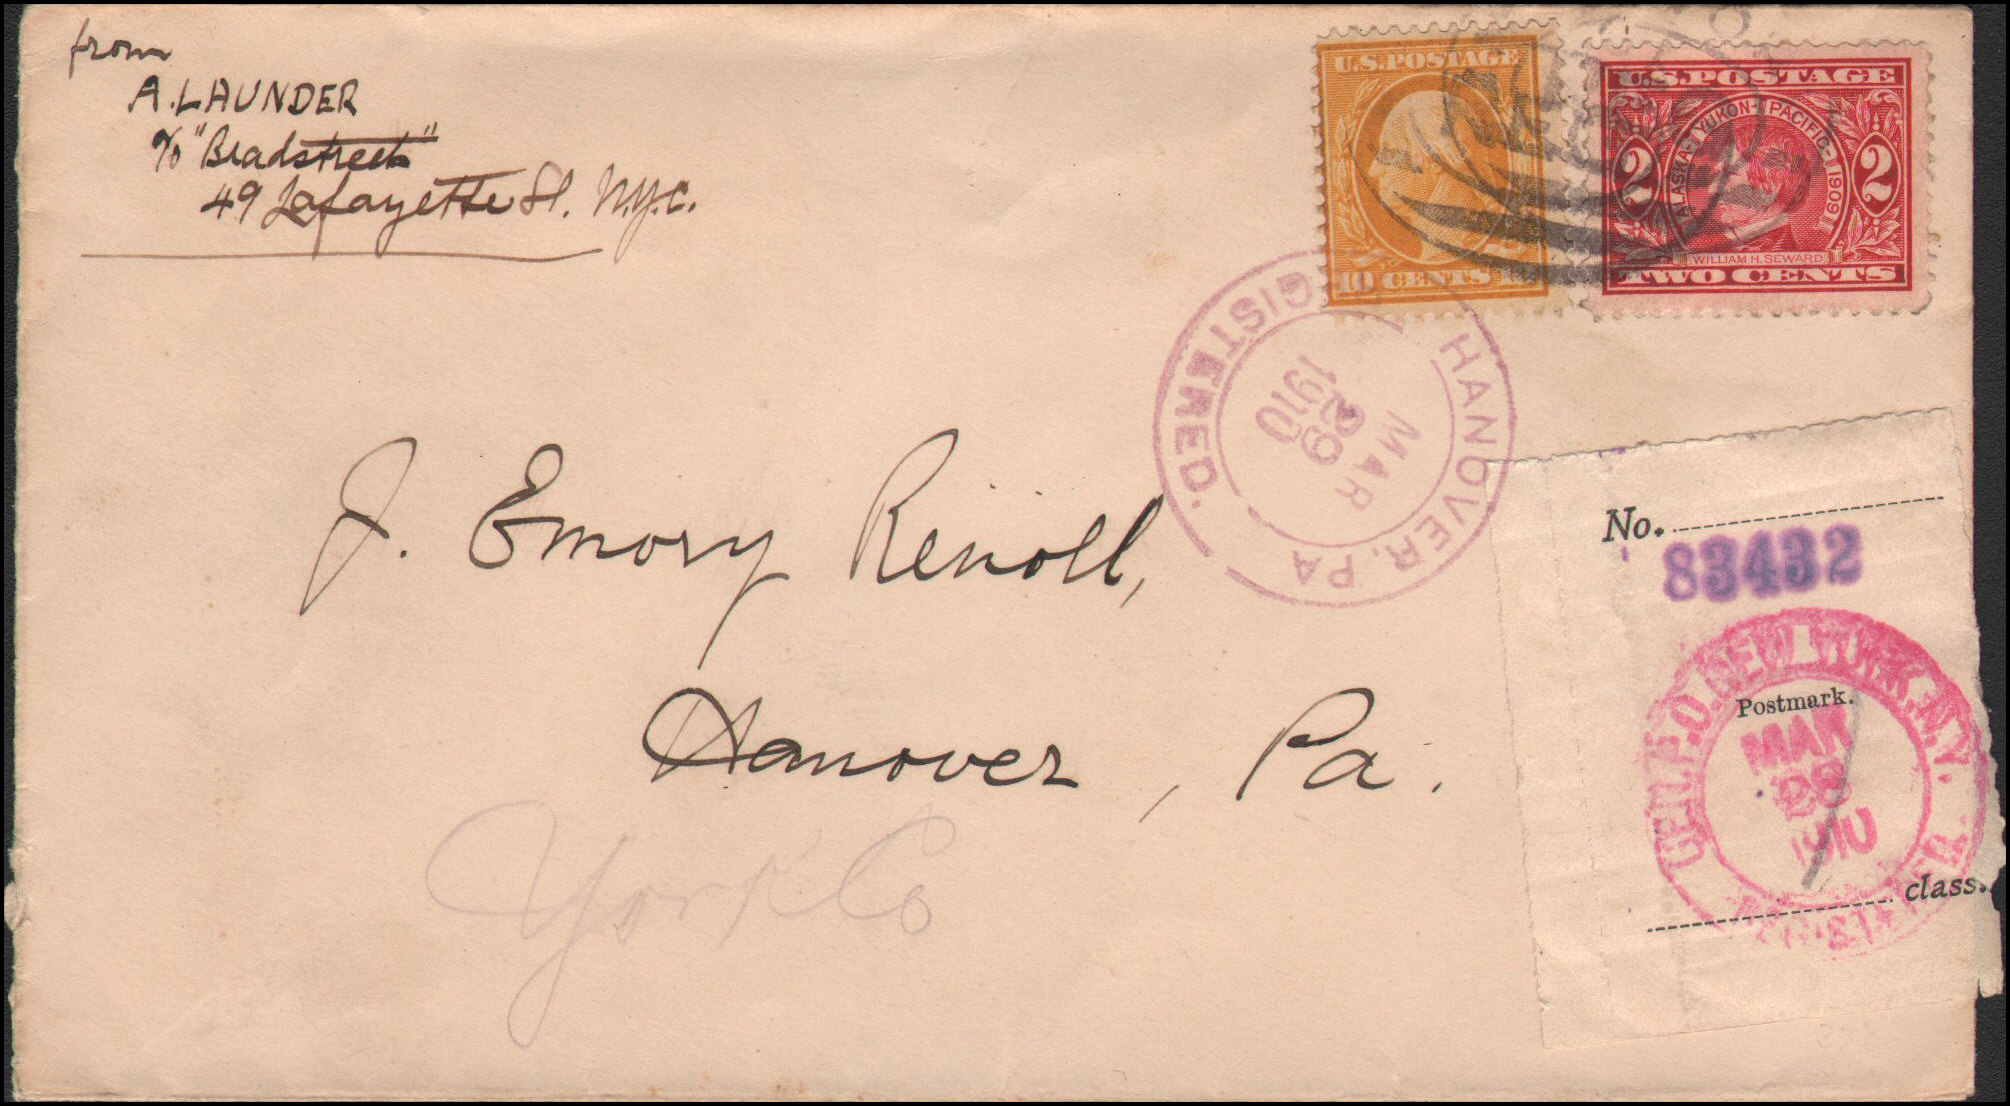 from
A. LAUNDER
c/o "Bradstreets"
49 Lafayette St. N.Y.C.
U.S. POSTAGE
10 CENTS 10
U.S. POSTAGE
ALASKA-YUKON-PACIFIC-1909
2 2
WILLIAM H. SEWARD
TWO CENTS
HANOVER, PA
REGISTERED.
MAR
29
1910
J. Emory Renoll,
Hanover, Pa.
York Co
No.
83432
GEN. P.O. NEW YORK, N.Y.
Postmark.
MAR
28
1910
class.